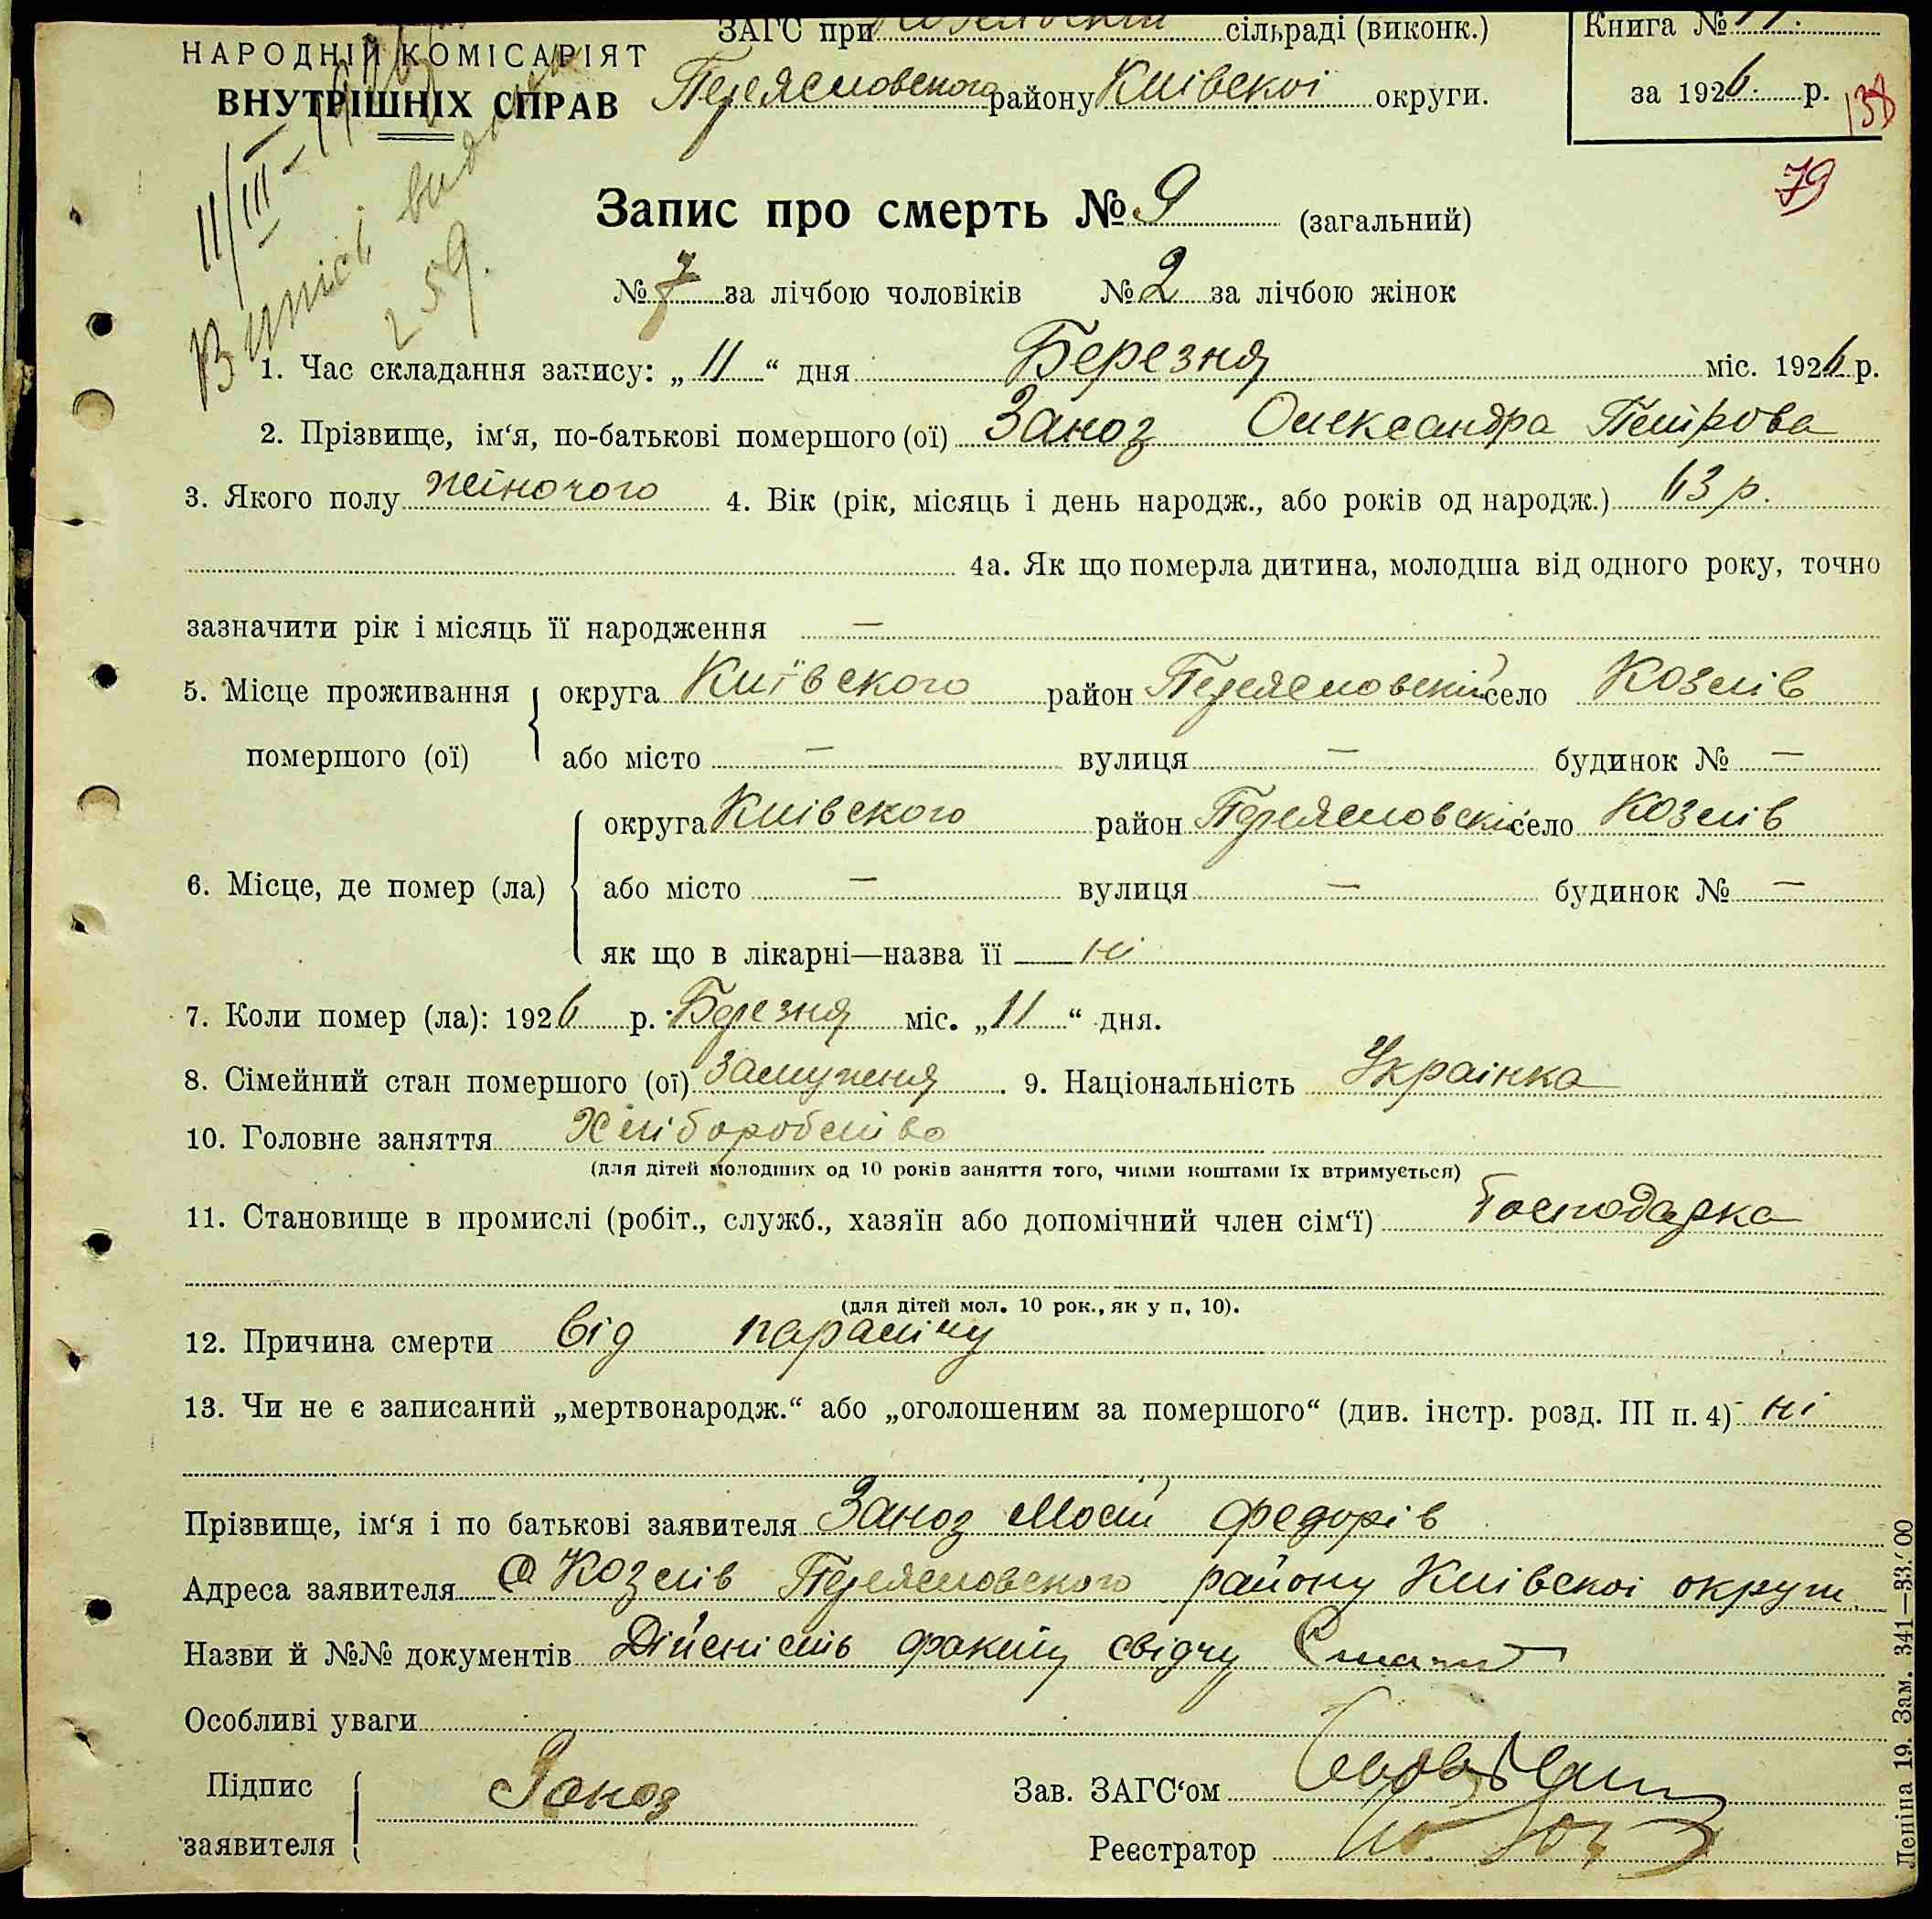 НАРОДНІЙ КОМІСАРІЯТ
ВНУТРІШНІХ СПРАВ
ЗАГС при Козлівскій сільраді (виконк.)
Переясловского району Київскоі округи.
Книга № 11.
за 1926. р.
138
79
11/III-1926
Випісь видано
259.
Запис про смерть № 9 (загальний)
№ 7 за лічбою чоловіків № 2 за лічбою жінок
1. Час складання запису: „11“ дня Березня міс. 1926 р.
2. Прізвище, ім‘я, по-батькові помершого (ої) Заноз Олександра Петрова
3. Якого полу жіночого 4. Вік (рік, місяць і день народж., або років од народж.) 63 р.
4а. Як що померла дитина, молодша від одного року, точно
зазначити рік і місяць її народження —
5. Місце проживання помершого (ої) округа Київского район Переясловский село Козлів
або місто — вулиця — будинок № —
6. Місце, де помер (ла) округа Киівского район Переясловский село Козлів
або місто — вулиця — будинок № —
як що в лікарні—назва її ні
7. Коли помер (ла): 1926 р. Березня міс. „11“ дня.
8. Сімейний стан помершого (ої) замужня. 9. Національність Украінка
10. Головне заняття Хліборобство
(для дітей молодших од 10 років заняття того, чиїми коштами їх втримується)
11. Становище в промислі (робіт., служб., хазяїн або допомічний член сім‘ї) Господарка
(для дітей мол. 10 рок., як у п. 10).
12. Причина смерти від паралічу
13. Чи не є записаний „мертвонародж.“ або „оголошеним за помершого“ (див. інстр. розд. III п. 4) ні
Прізвище, ім‘я і по батькові заявителя Заноз Мосій Федорів
Адреса заявителя с Козлів Переясловского району Київскоі округи
Назви й №№ документів Дійсність факту свідчу
Особливі уваги
Підпис заявителя Заноз
Зав. ЗАГС‘ом
Реєстратор
Леніна 19. Зам. 341—33.‘00